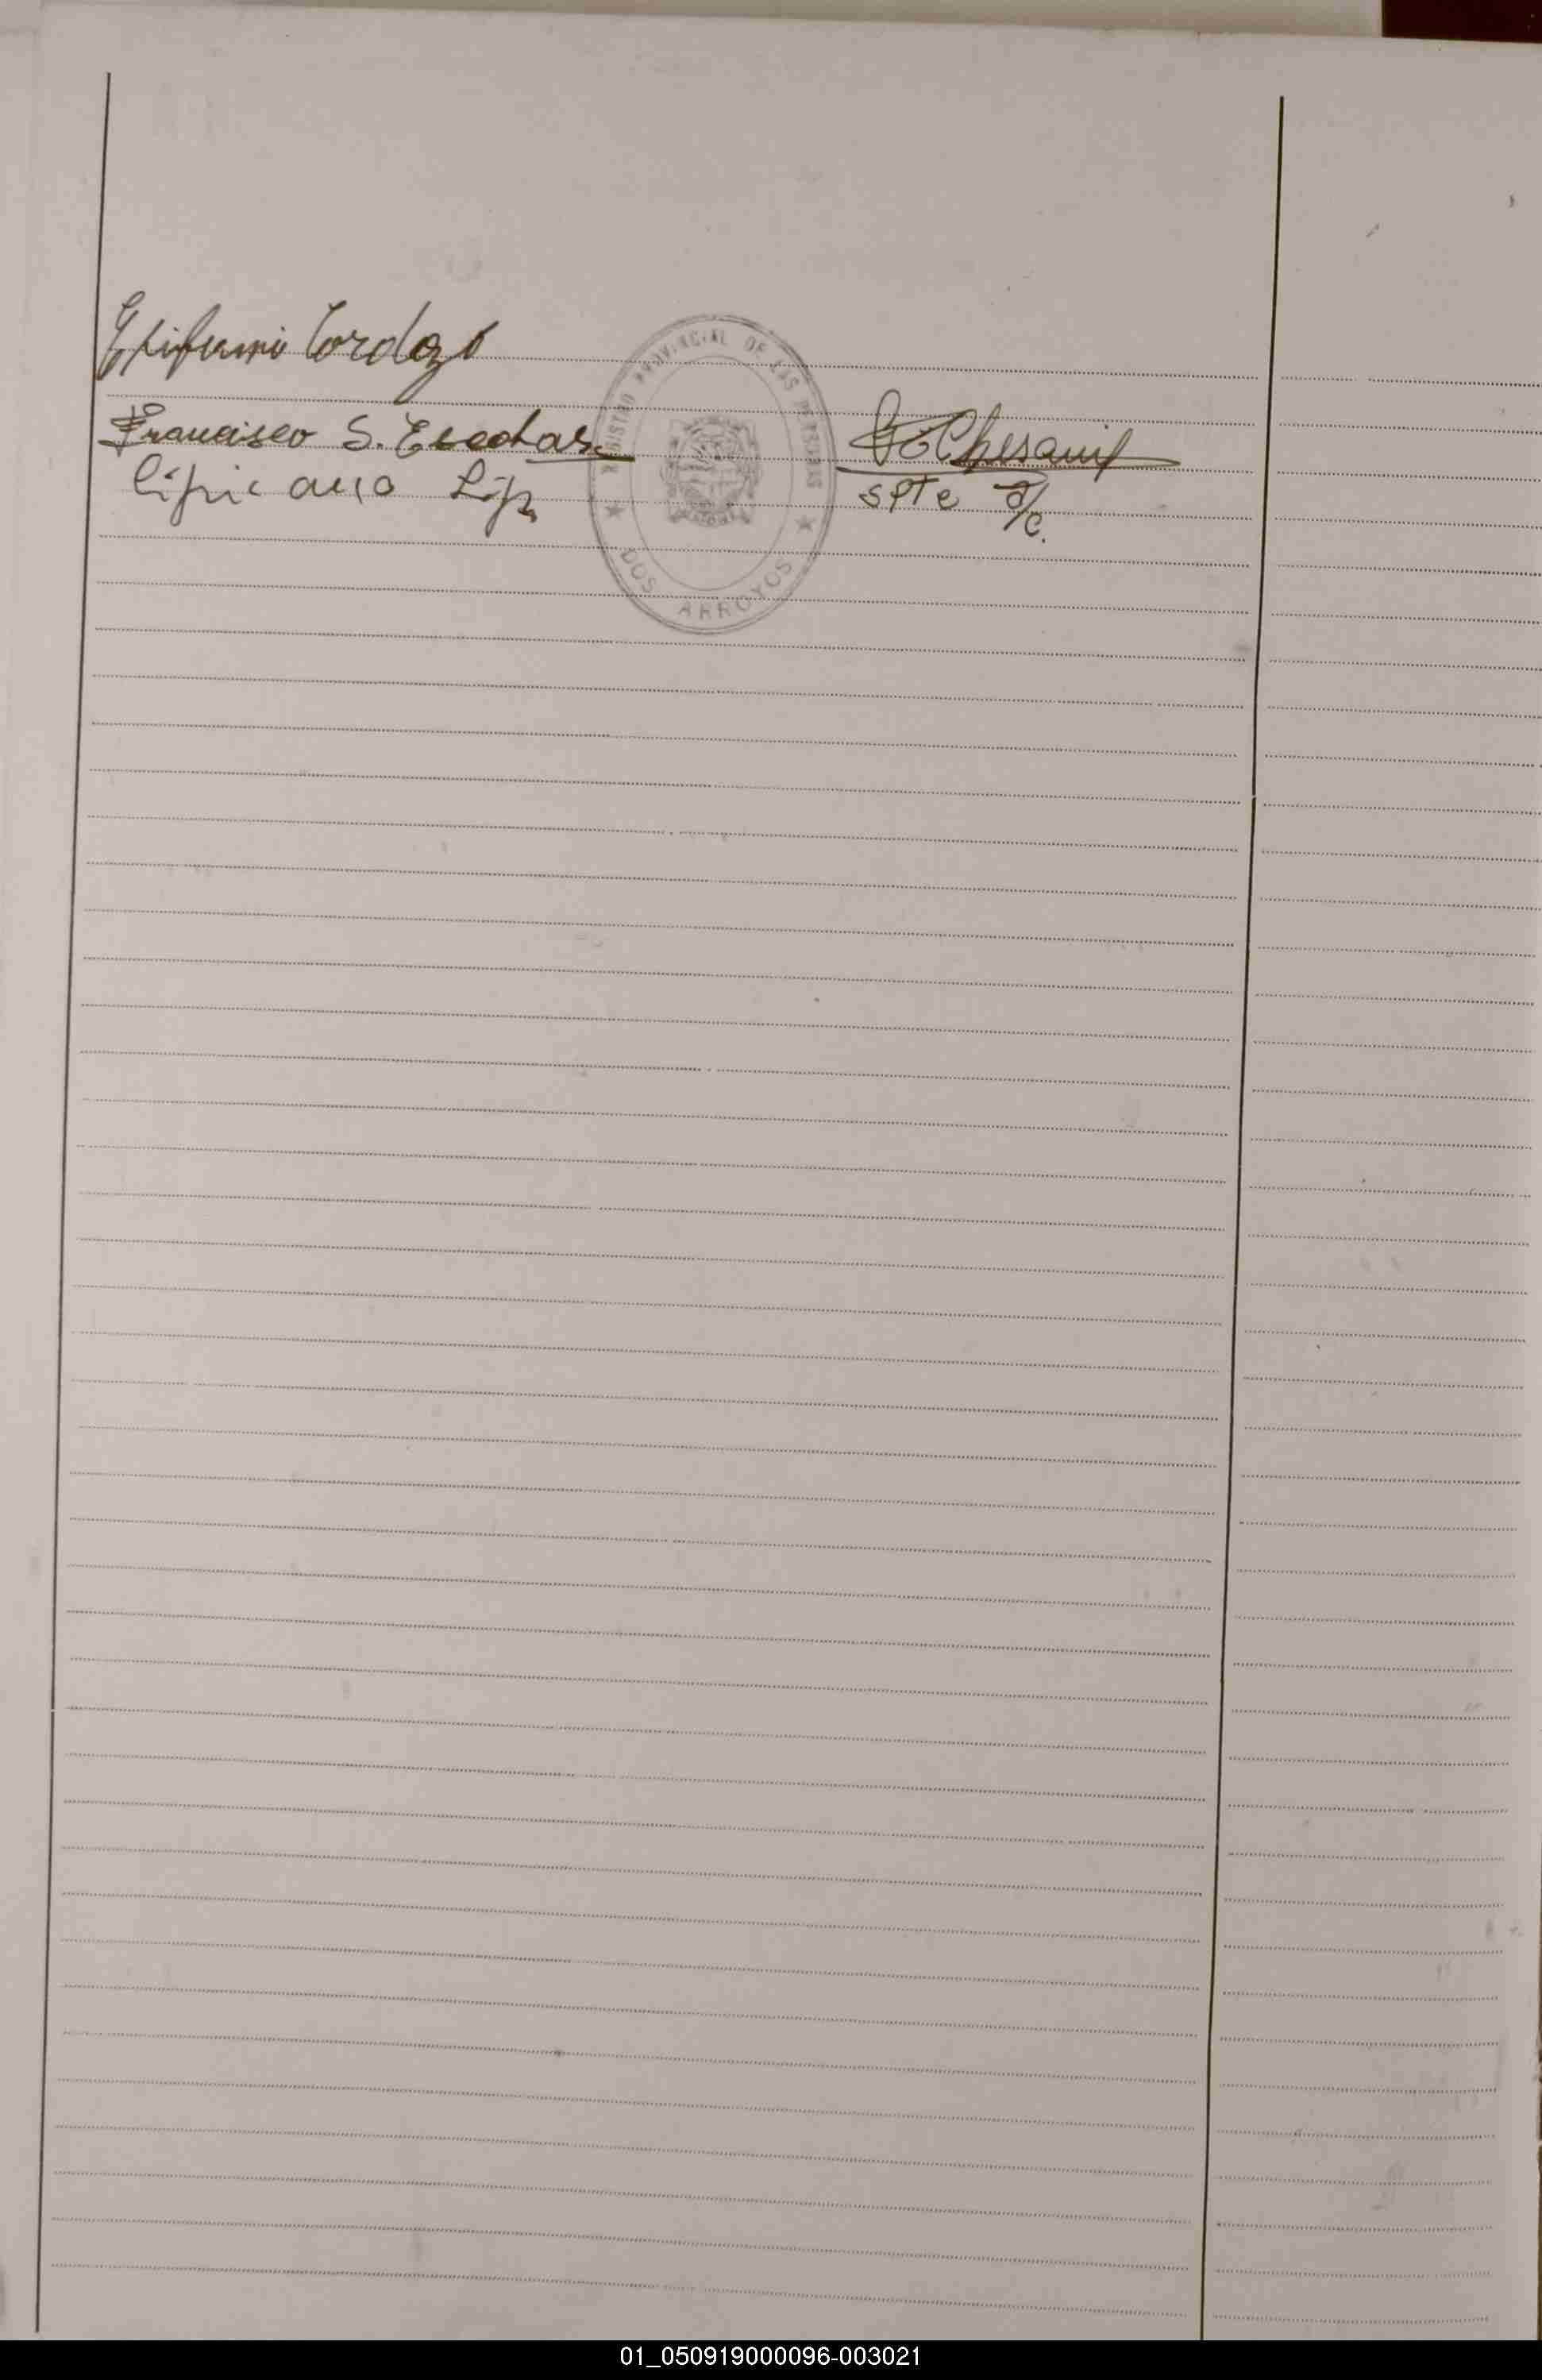 Epifanio Cordozo
Francisco S. Escobar
Cipriano
REGISTRO PROVINCIAL DE LAS PERSONAS
DOS ARROYOS
spte a/c.
01_050919000096-003021